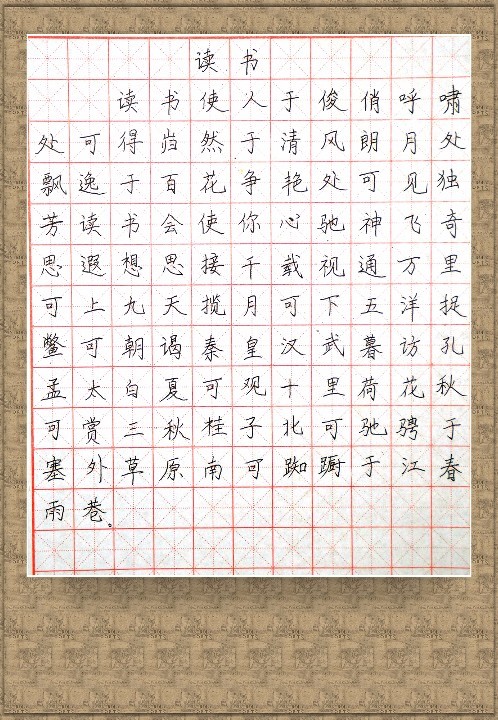 读书
读书使人于俊俏呼啸
处可得岿然于清风朗月处
飘逸于百花争艳处可见独
芳读书会使你心驰神飞奇
思遐想思接千载视通万里
可上九天揽月可下五洋捉
鳖可朝谒秦皇汉武暮访孔
孟太白夏可观十里荷花秋
可赏三秋桂子北可驰骋于
塞外草原南可踟蹰于江春
雨巷。